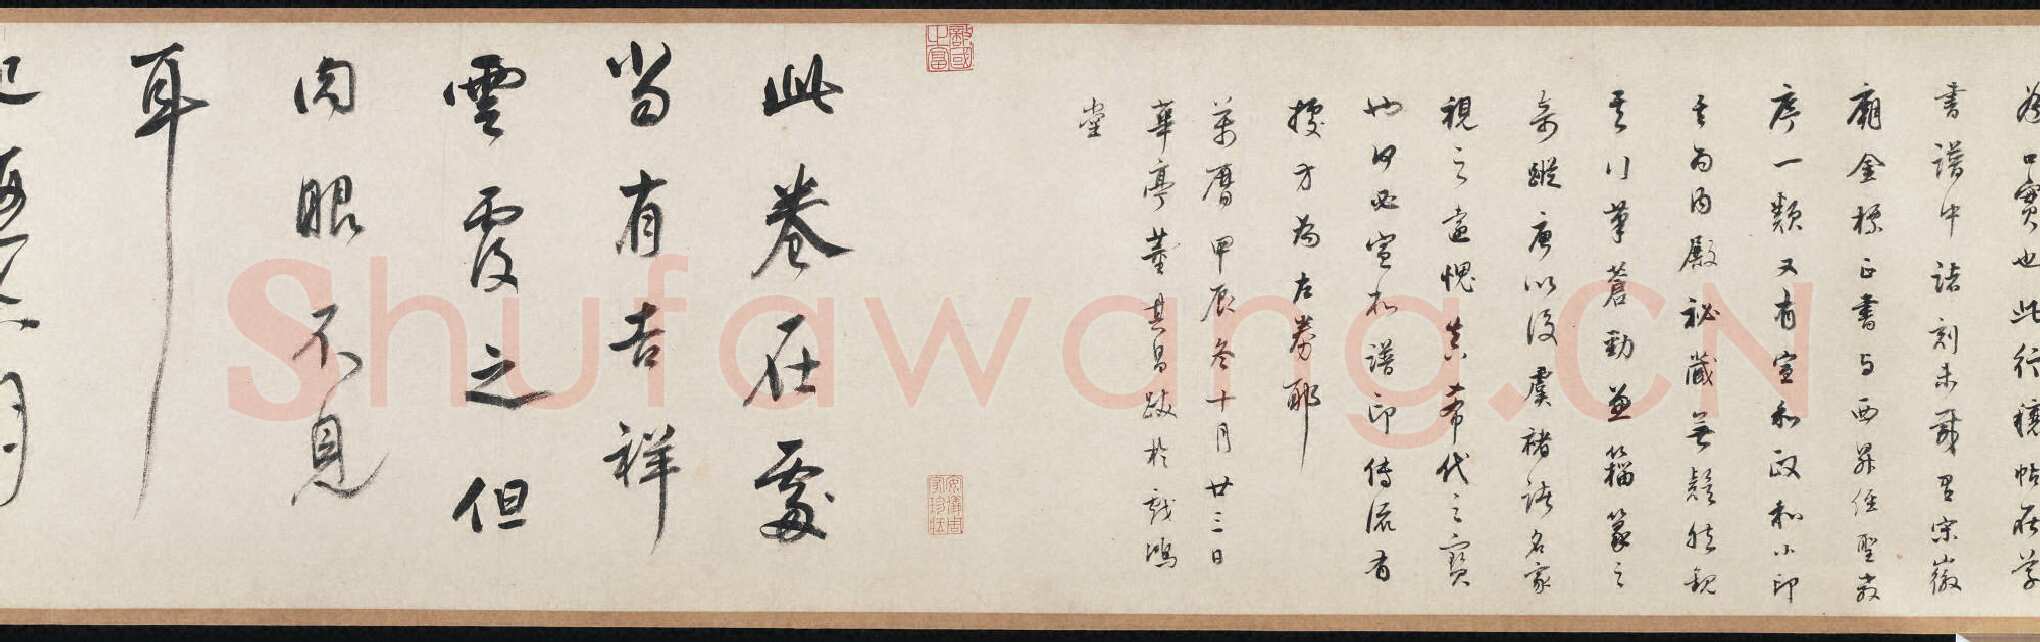 為口實也此行穰帖在孫
書譜中諸刻未載有宋徽
廟金標正書與西昇經聖教
序一類又有宣和政和小印
其為內殿秘藏無疑然觀
其行筆蒼勁兼籀篆之
奇蹤唐以後虞褚諸名家
視之遠愧真希代之寶
也何必宣和譜印傳流有
據方為左券耶
萬曆甲辰冬十月廿三日
華亭董其昌跋於戲鴻
堂
此卷在處
當有吉祥
雲覆之但
肉眼不見
耳
Shufawang.CN